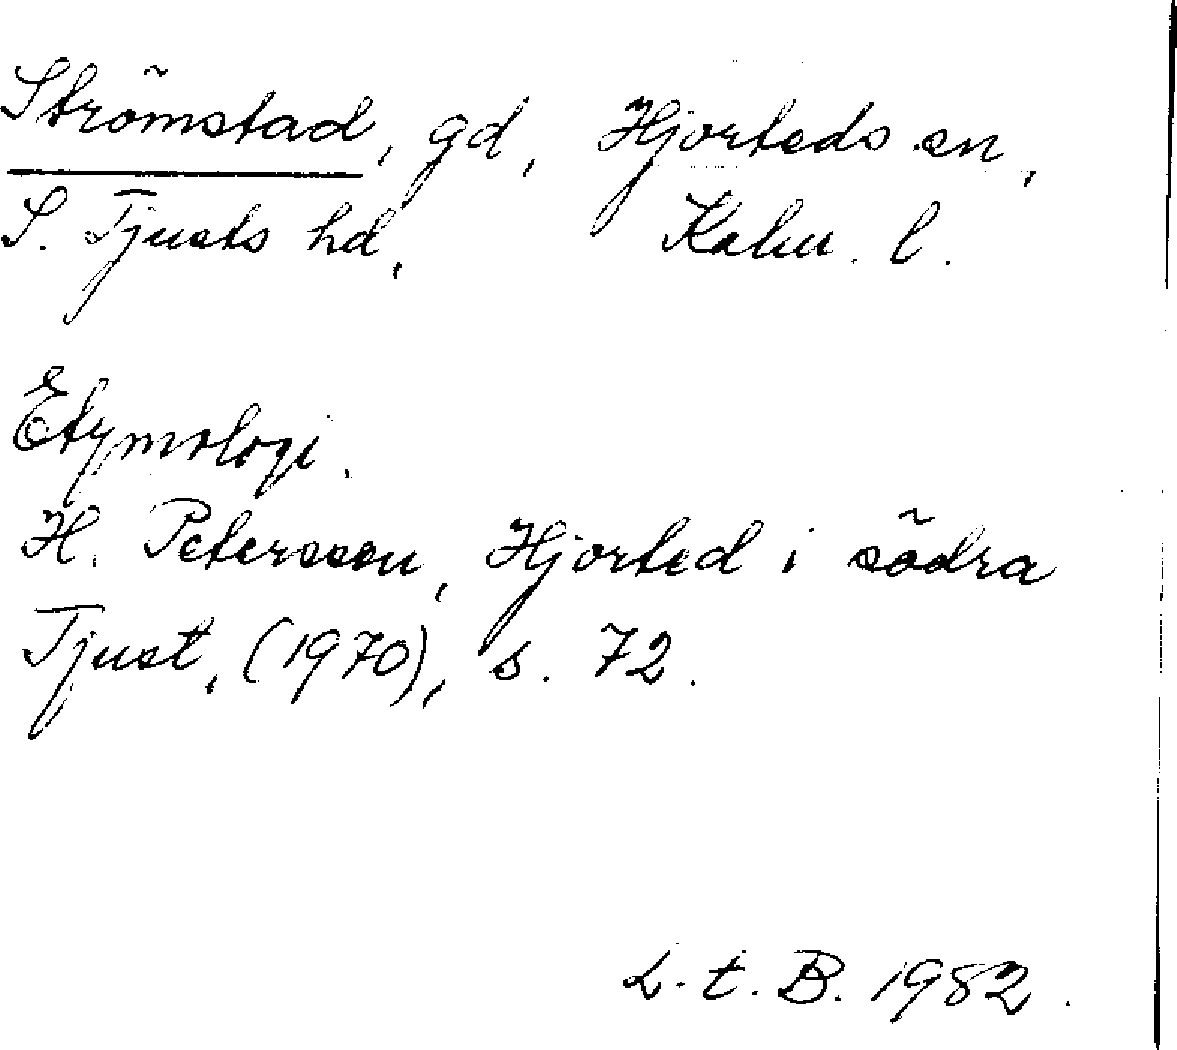 Strömstad, gd, Hjorteds sn,
S. Tjusts hd, Kalm. l.
Etymologi.
H. Petersson, Hjorted i södra
Tjust, (1970), s. 72.
L. t. B. 1982.